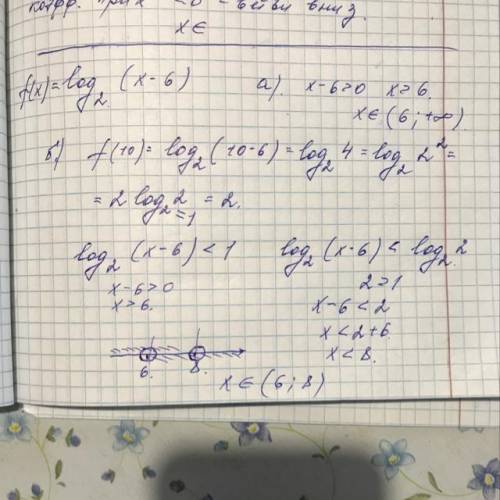 коэфф. при x² < 0 - ветви вниз.
x ∈
f(x) = log₂ (x-6)  a). x-6>0  x>6.
x ∈ (6; +∞)
б) f(10) = log₂ (10-6) = log₂ 4 = log₂ 2² =
= 2 log₂ 2 = 2.
=1
log₂ (x-6) < 1  log₂ (x-6) < log₂ 2
x-6>0  2>1
x>6.  x-6<2
x<2+6
x<8.
6.  8.
x ∈ (6; 8)